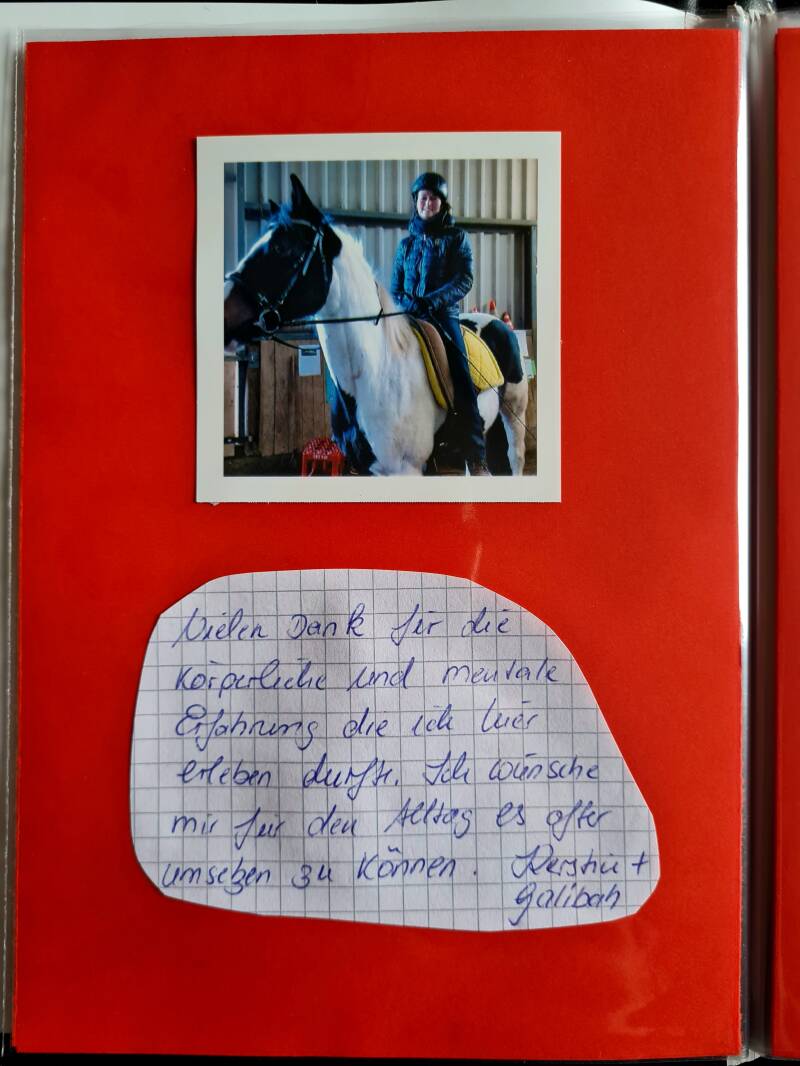 Vielen Dank für die
körperliche und mentale
Erfahrung die ich hier
erleben durfte. Ich wünsche
mir für den Alltag es öfter
umsetzen zu können. Kerstin +
Galibah